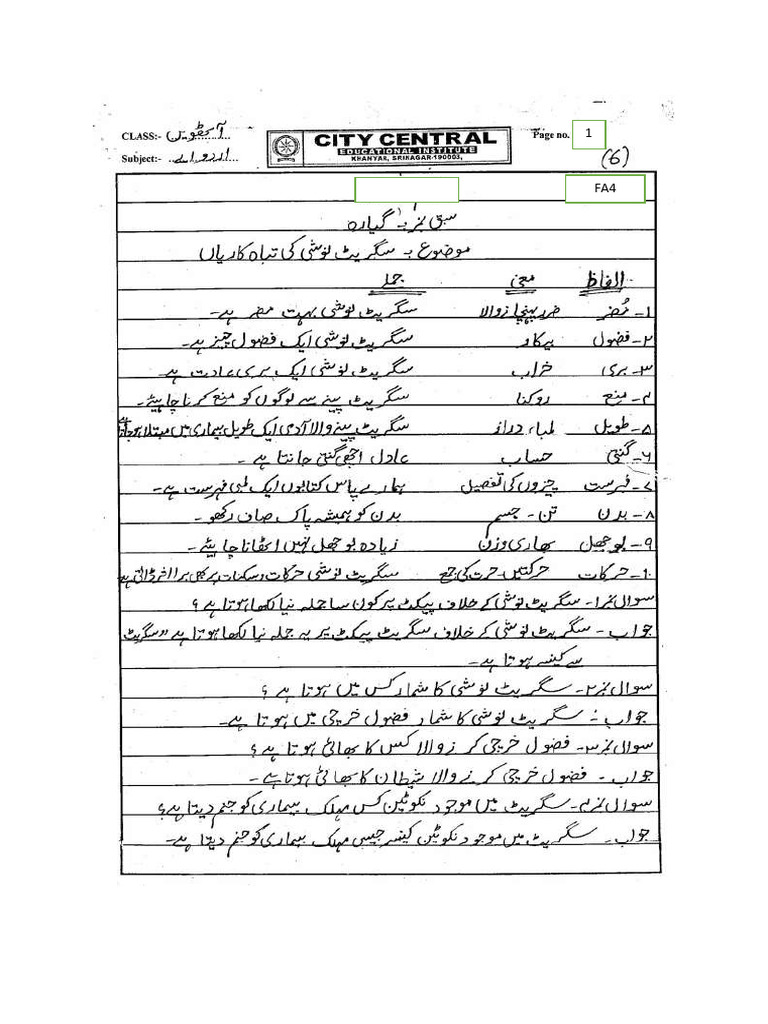 CLASS:- آٹھویں
CITY CENTRAL
EDUCATIONAL INSTITUTE
KHANYAR, SRINAGAR-190003,
Page no. 1
Subject:- اردو اے
(6)
FA4
سبق نمبر:۔ گیارہ
موضوع:۔ سگریٹ نوشی کی تباہ کاریاں
الفاظ معنی جملے
۱۔ مُضر ضرر پہنچانے والا سگریٹ نوشی بہت مضر ہے۔
۲۔ فضول بیکار سگریٹ نوشی ایک فضول چیز ہے۔
۳۔ بری خراب سگریٹ نوشی ایک بری عادت ہے۔
۴۔ منع روکنا سگریٹ پینے سے لوگوں کو منع کرنا چاہیئے۔
۵۔ طویل لمباء دراز سگریٹ پینے والا آدمی ایک طویل بیماری میں مبتلا ہو جاتا ہے
۶۔ گنتی حساب عادل اچھی گنتی جانتا ہے۔
۷۔ فہرست چیزوں کی تفصیل ہمارے پاس کتابوں ایک لمبی فہرست ہے۔
۸۔ بدن تن۔ جسم بدن کو ہمیشہ پاک صاف رکھو۔
۹۔ بوجھل بھاری وزن زیادہ بوجھل نہیں اٹھانا چاہیئے۔
۱۰۔ حرکات حرکتیں۔ حرکت کی جمع سگریٹ نوشی حرکات و سکنات پر بھی برا اثر ڈالتی ہے
سوال نمبر۱۔ سگریٹ نوشی کے خلاف پیکٹ پر کون سا جملہ نیا لکھا ہوتا ہے؟
جواب۔ سگریٹ نوشی کے خلاف سگریٹ پیکٹ پر یہ جملہ نیا لکھا ہوتا ہے "سگریٹ
سے کینسر ہوتا ہے۔
سوال نمبر۲۔ سگریٹ نوشی کا شمار کس میں ہوتا ہے؟
جواب:۔ سگریٹ نوشی کا شمار فضول خرچی میں ہوتا ہے۔
سوال نمبر۳۔ فضول خرچی کرنے والا کس کا بھائی ہوتا ہے؟
جواب۔ فضول خرچی کرنے والا شیطان کا بھائی ہوتا ہے۔
سوال نمبر۴۔ سگریٹ میں موجود نکوٹین کس مہلک بیماری کو جنم دیتا ہے؟
جواب۔ سگریٹ میں موجود نکوٹین کینسر جیسی مہلک بیماری کو جنم دیتا ہے۔